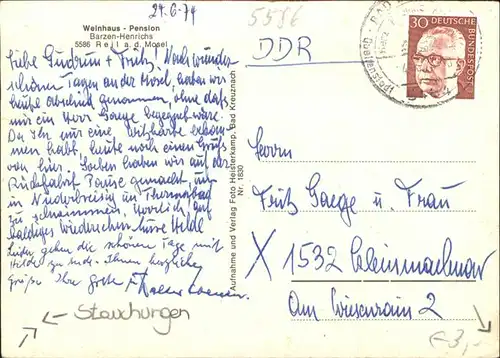 24.6.74
5586
Weinhaus - Pension
Barzen-Henrichs
5586 Reil a.d. Mosel
DDR
30 DEUTSCHE BUNDESPOST
Liebe Gudrun + Fritz! Nach wunder
schönen Tagen an der Mosel, haben wir
heute Abschied genommen, ohne daß
mir ein Herr Gaege begegnet wäre.
Da Ihr nur eine Ansichtskarte bekom
men habt, heute noch einen Gruß
von hier. Soeben haben wir auf der
Rückfahrt Pause gemacht, um
in Niederbreisig im Thermalbad
zu schwimmen. Herrlich! Auf
baldiges Wiedersehen Eure Hilde
Leider gehen die schönen Tage mit
Hilde zu Ende. Ihnen herzliche
Grüße Ihre Grete
Aufnahme und Verlag Foto Heisterkamp, Bad Kreuznach
Nr. 1830
Herrn
Fritz Gaege u. Frau
X 1532 Kleinmachnow
Am Wiesenrain 2
Stauchungen
€ 3,-